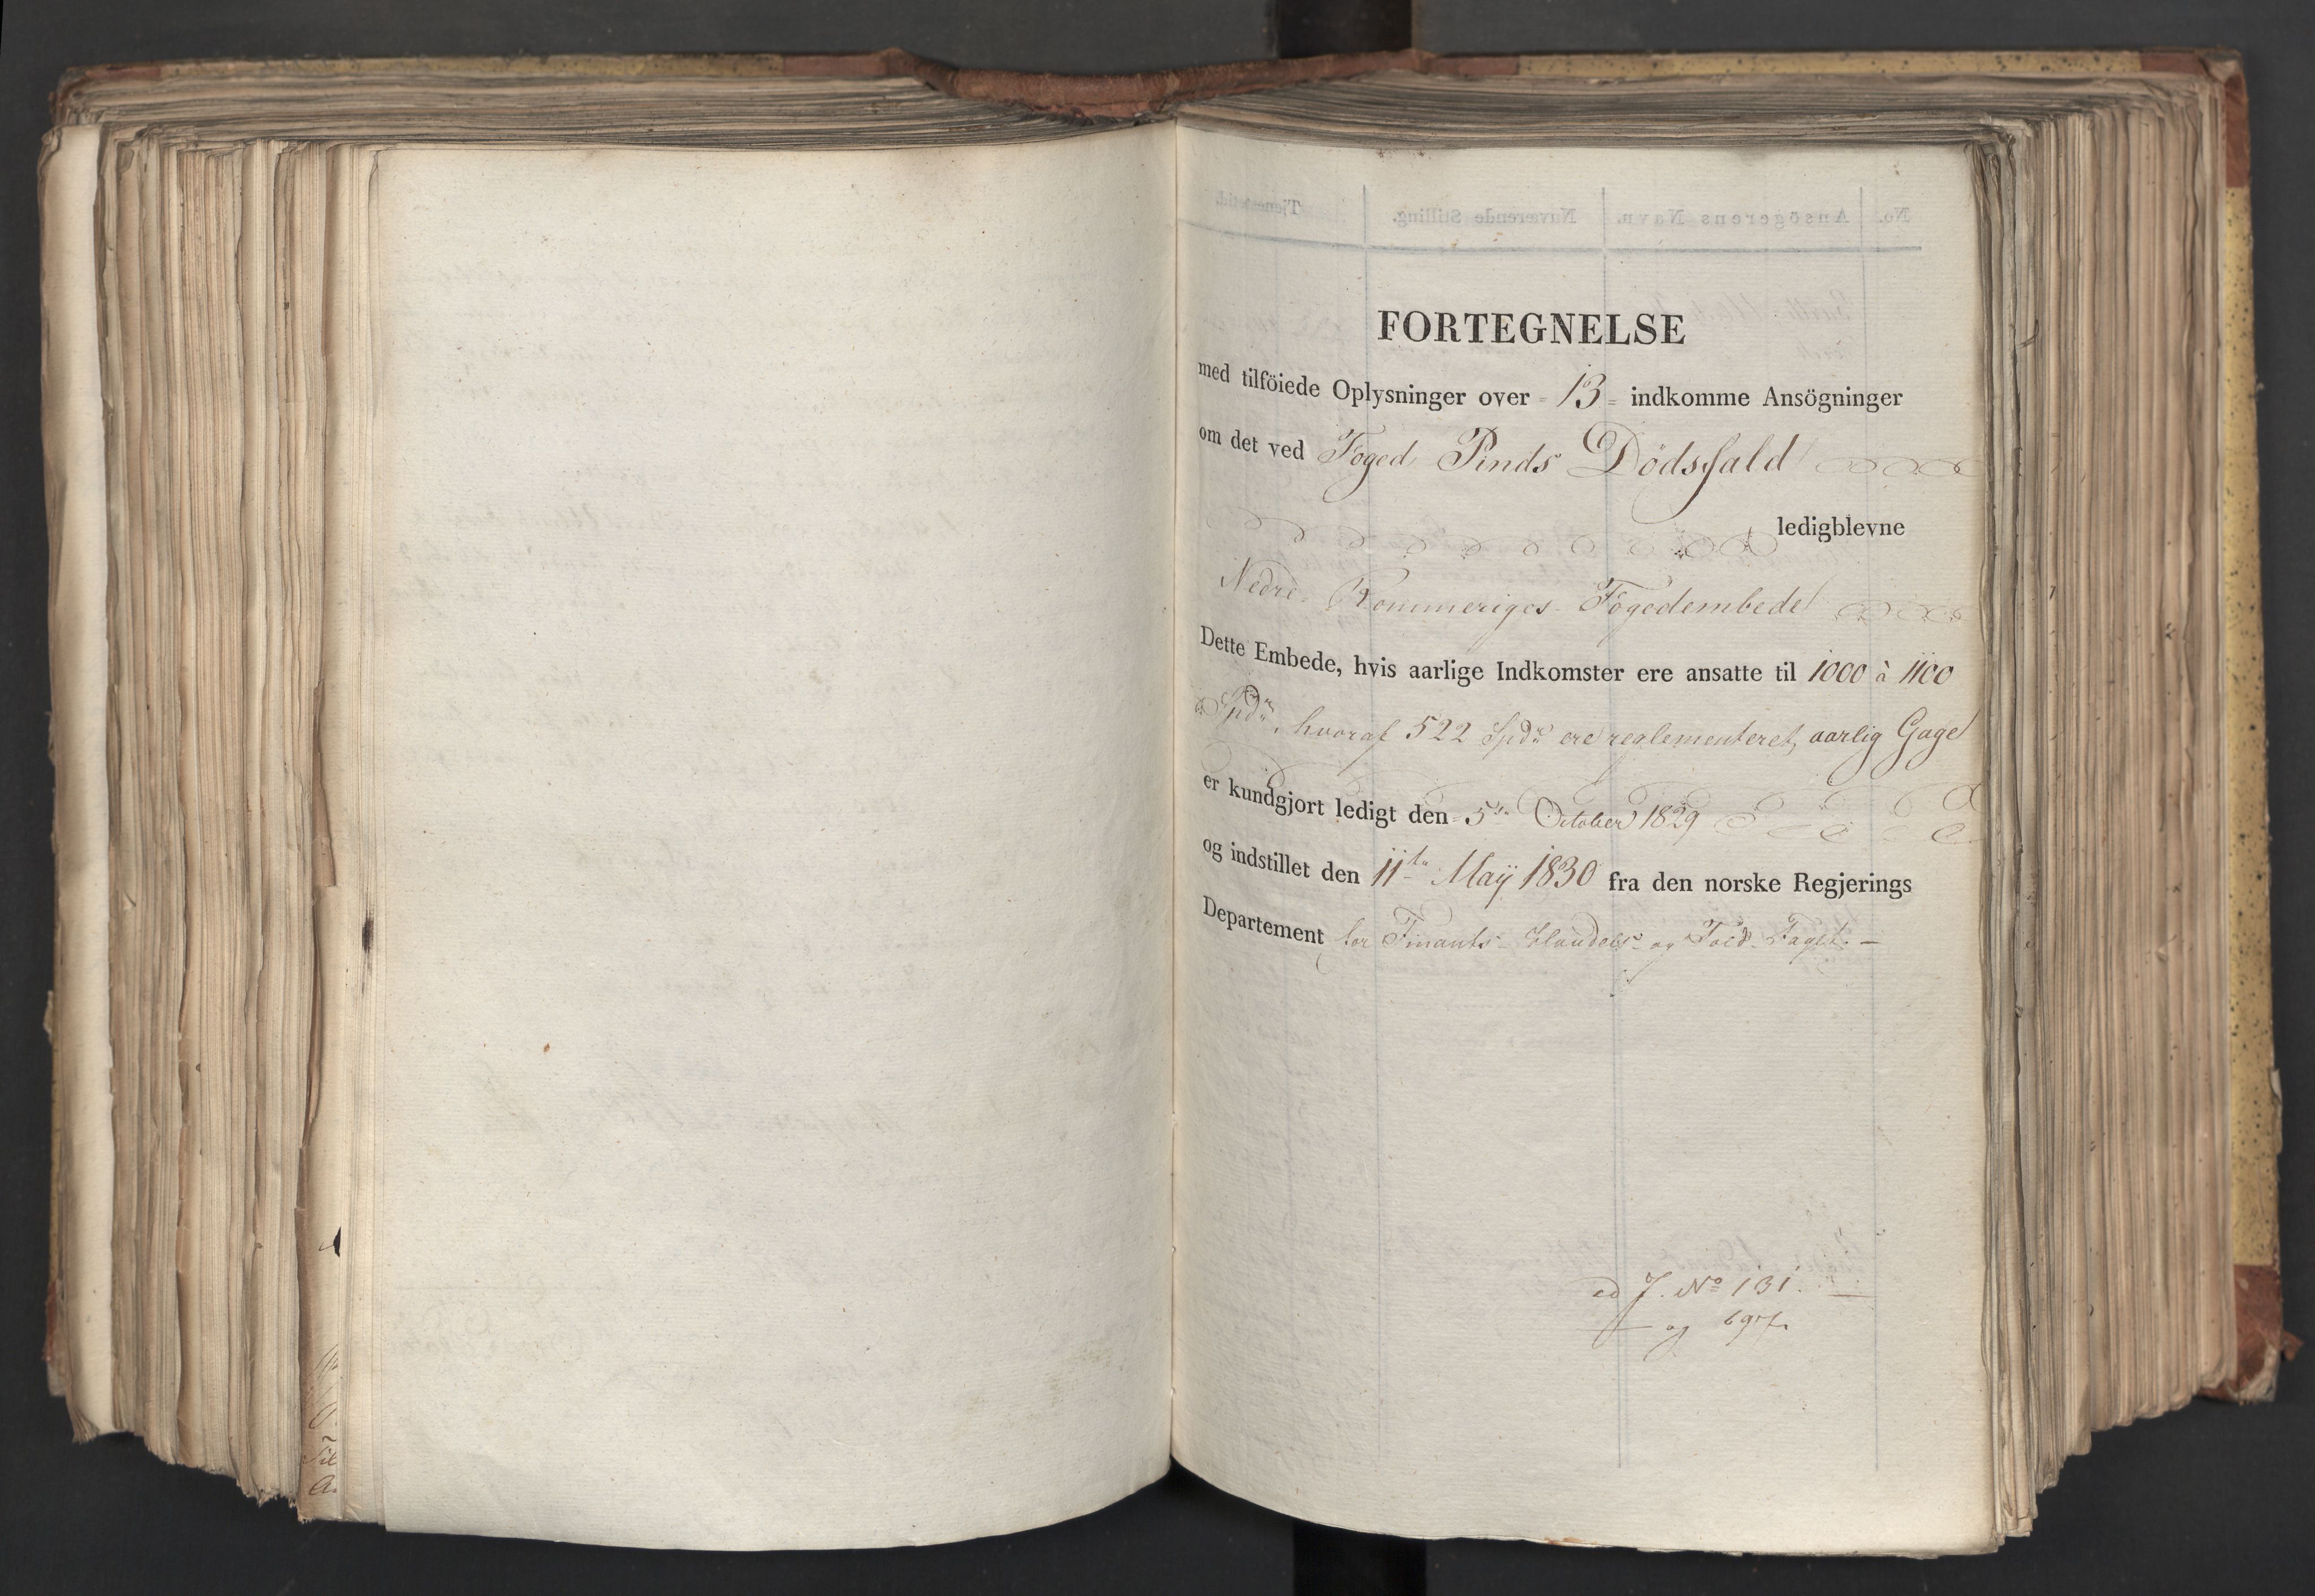 FORTEGNELSE
med tilföiede Oplysninger over = 13 = indkomme Ansögninger
om det ved Foged Pinds Dödsfald
ledigblevne
Nedre- Rommeriges- Fogedembede
Dette Embede, hvis aarlige Indkomster ere ansatte til 1000 à 1100
Spdr, hvoraf 522 Spdr ere reglementeret, aarlig Gage
er kundgjort ledigt den 5te October 1829
og indstillet den 11te Maÿ 1830 fra den norske Regjerings
Departement for Finants- Handels- og Told- Faget. —
ad J. No 131.
og 697.